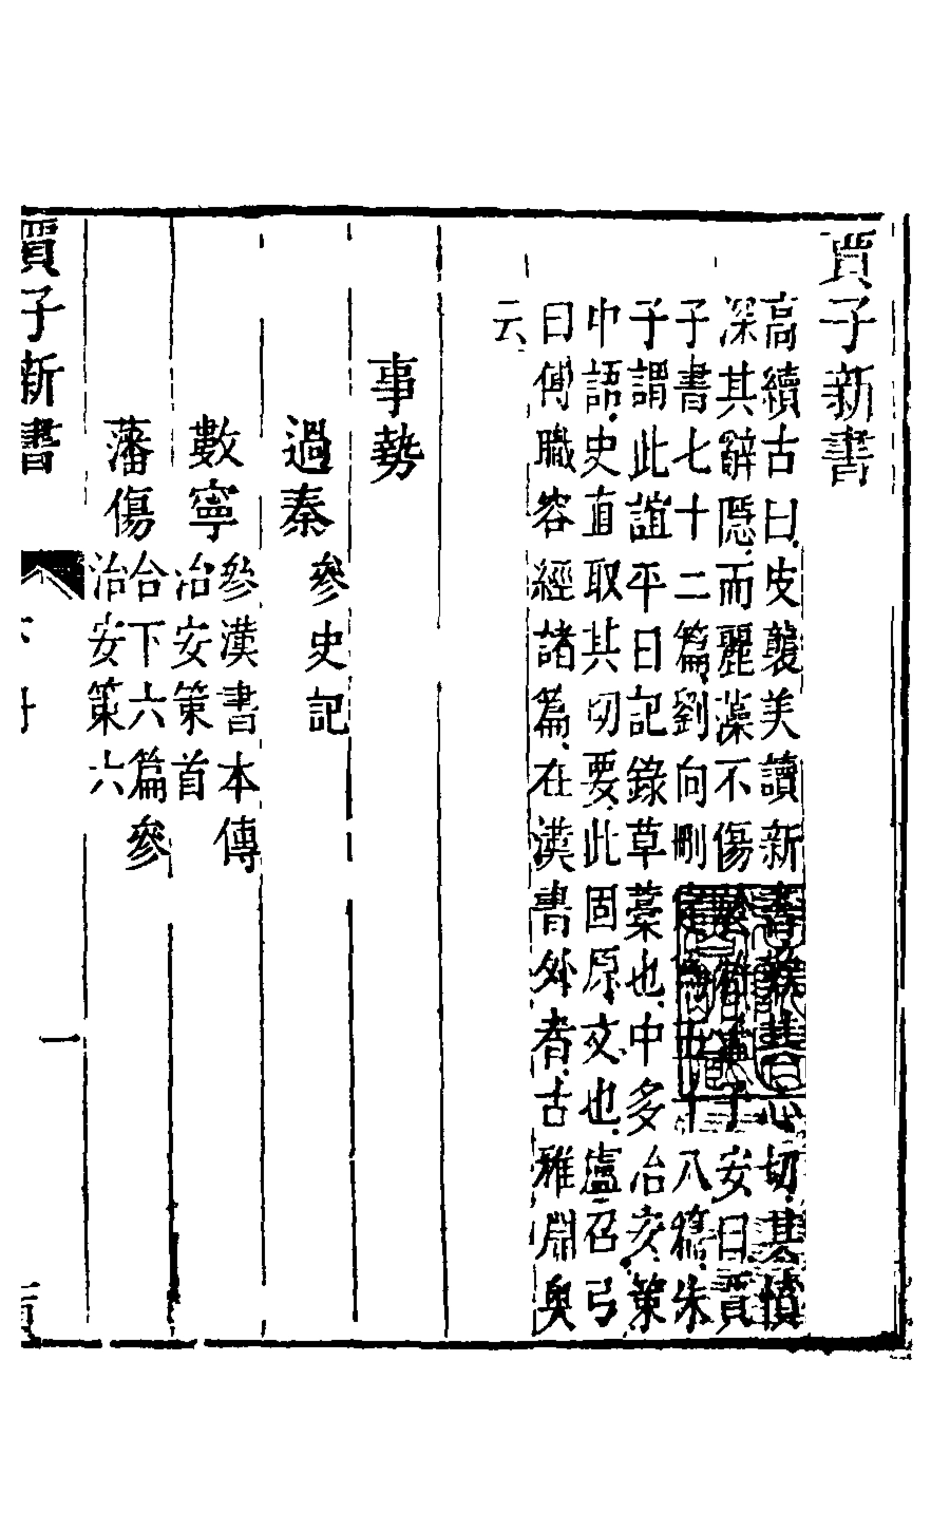 賈子新書
高續古曰皮襲美讀新書歎其心切其憤
深其辭隱而麗藻不傷於雅王子安曰賈
子書七十二篇劉向刪定爲五十八篇朱
子謂此誼平日記錄草藁也中多治安策
中語史直取其切要此固原文也盧召弓
曰傅職容經諸篇在漢書外者古雅淵奥
云
事勢
過秦 參史記
數寧 參漢書本傳
治安策首
藩傷 合下六篇參
治安策六
賈子新書
一